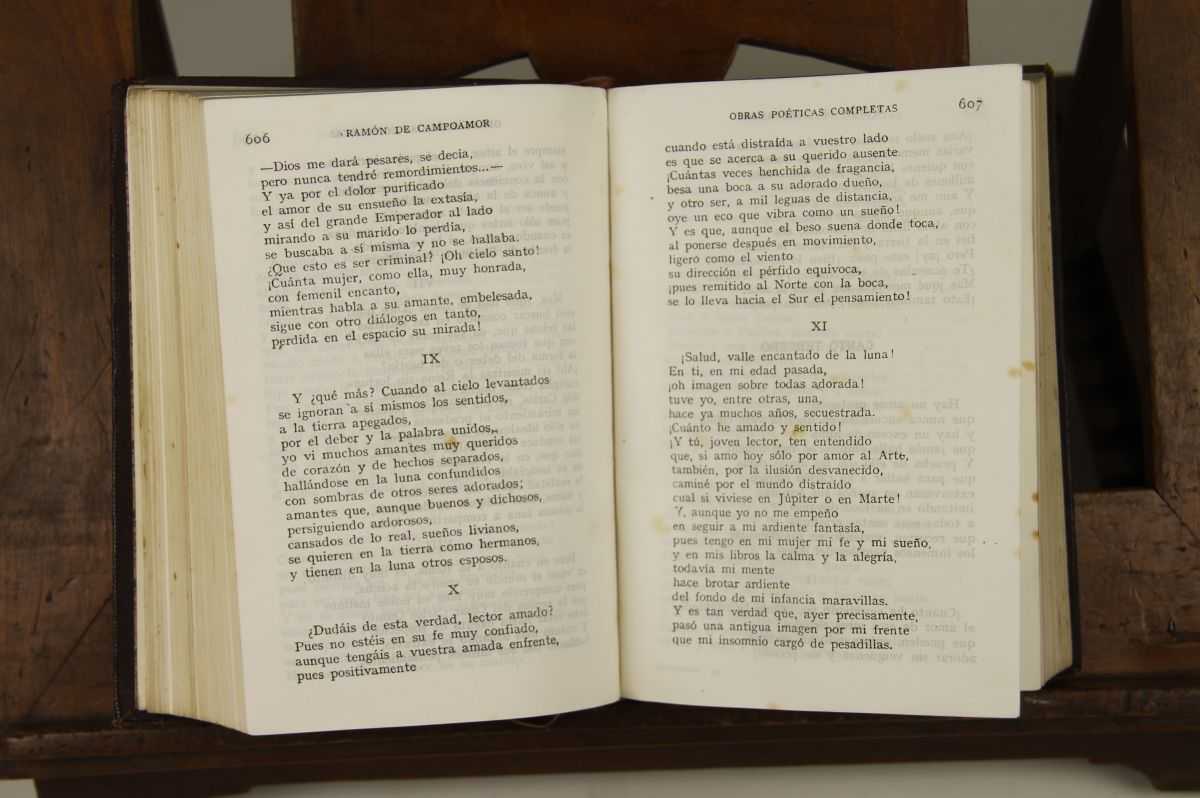 606
RAMÓN DE CAMPOAMOR
—Dios me dará pesares, se decía,
pero nunca tendré remordimientos...—
Y ya por el dolor purificado
el amor de su ensueño la extasía,
y así del grande Emperador al lado
mirando a su marido lo perdía,
se buscaba a sí misma y no se hallaba.
¿Que esto es ser criminal? ¡Oh cielo santo!
¡Cuánta mujer, como ella, muy honrada,
con femenil encanto,
mientras habla a su amante, embelesada,
sigue con otro diálogos en tanto,
perdida en el espacio su mirada!
IX
Y ¿qué más? Cuando al cielo levantados
se ignoran a sí mismos los sentidos,
a la tierra apegados,
por el deber y la palabra unidos,
yo vi muchos amantes muy queridos
de corazón y de hechos separados,
hallándose en la luna confundidos
con sombras de otros seres adorados;
amantes que, aunque buenos y dichosos,
persiguiendo ardorosos,
cansados de lo real, sueños livianos,
se quieren en la tierra como hermanos,
y tienen en la luna otros esposos.
X
¿Dudáis de esta verdad, lector amado?
Pues no estéis en su fe muy confiado,
aunque tengáis a vuestra amada enfrente,
pues positivamente
OBRAS POÉTICAS COMPLETAS
607
cuando está distraída a vuestro lado
es que se acerca a su querido ausente.
¡Cuántas veces henchida de fragancia,
besa una boca a su adorado dueño,
y otro ser, a mil leguas de distancia,
oye un eco que vibra como un sueño!
Y es que, aunque el beso suena donde toca,
al ponerse después en movimiento,
ligero como el viento
su dirección el pérfido equivoca,
¡pues remitido al Norte con la boca,
se lo lleva hacia el Sur el pensamiento!
XI
¡Salud, valle encantado de la luna!
En ti, en mi edad pasada,
¡oh imagen sobre todas adorada!
tuve yo, entre otras, una,
hace ya muchos años, secuestrada.
¡Cuánto he amado y sentido!
¡Y tú, joven lector, ten entendido
que, si amo hoy sólo por amor al Arte,
también, por la ilusión desvanecido,
caminé por el mundo distraído
cual si viviese en Júpiter o en Marte!
Y, aunque yo no me empeño
en seguir a mi ardiente fantasía,
pues tengo en mi mujer mi fe y mi sueño,
y en mis libros la calma y la alegría,
todavía mi mente
hace brotar ardiente
del fondo de mi infancia maravillas.
Y es tan verdad que, ayer precisamente,
pasó una antigua imagen por mi frente
que mi insomnio cargó de pesadillas.